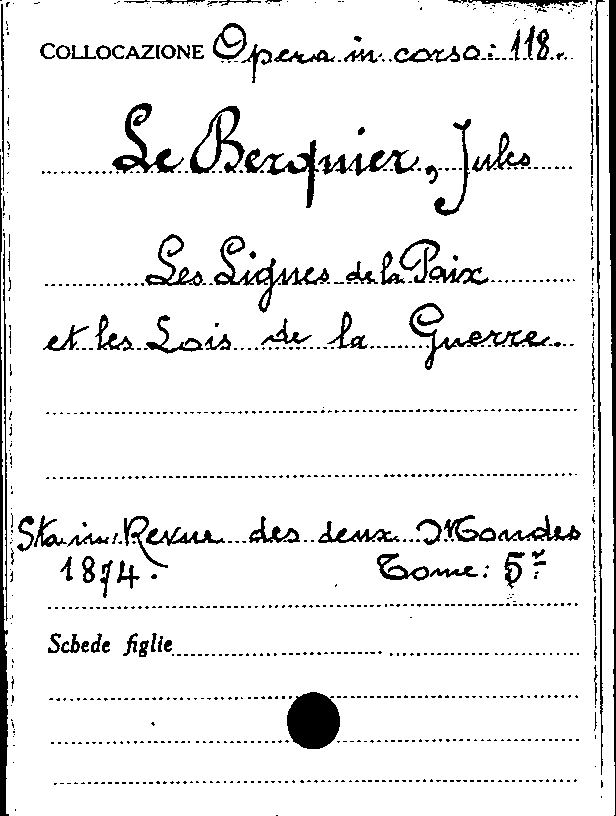 COLLOCAZIONE Opera in corso: 118.
Le Berquier, Jules
Les Lignes de la Paix
et les Lois de la Guerre.
Sta in: Revue des deux Mondes
1874. Tome: 5º
Schede figlie